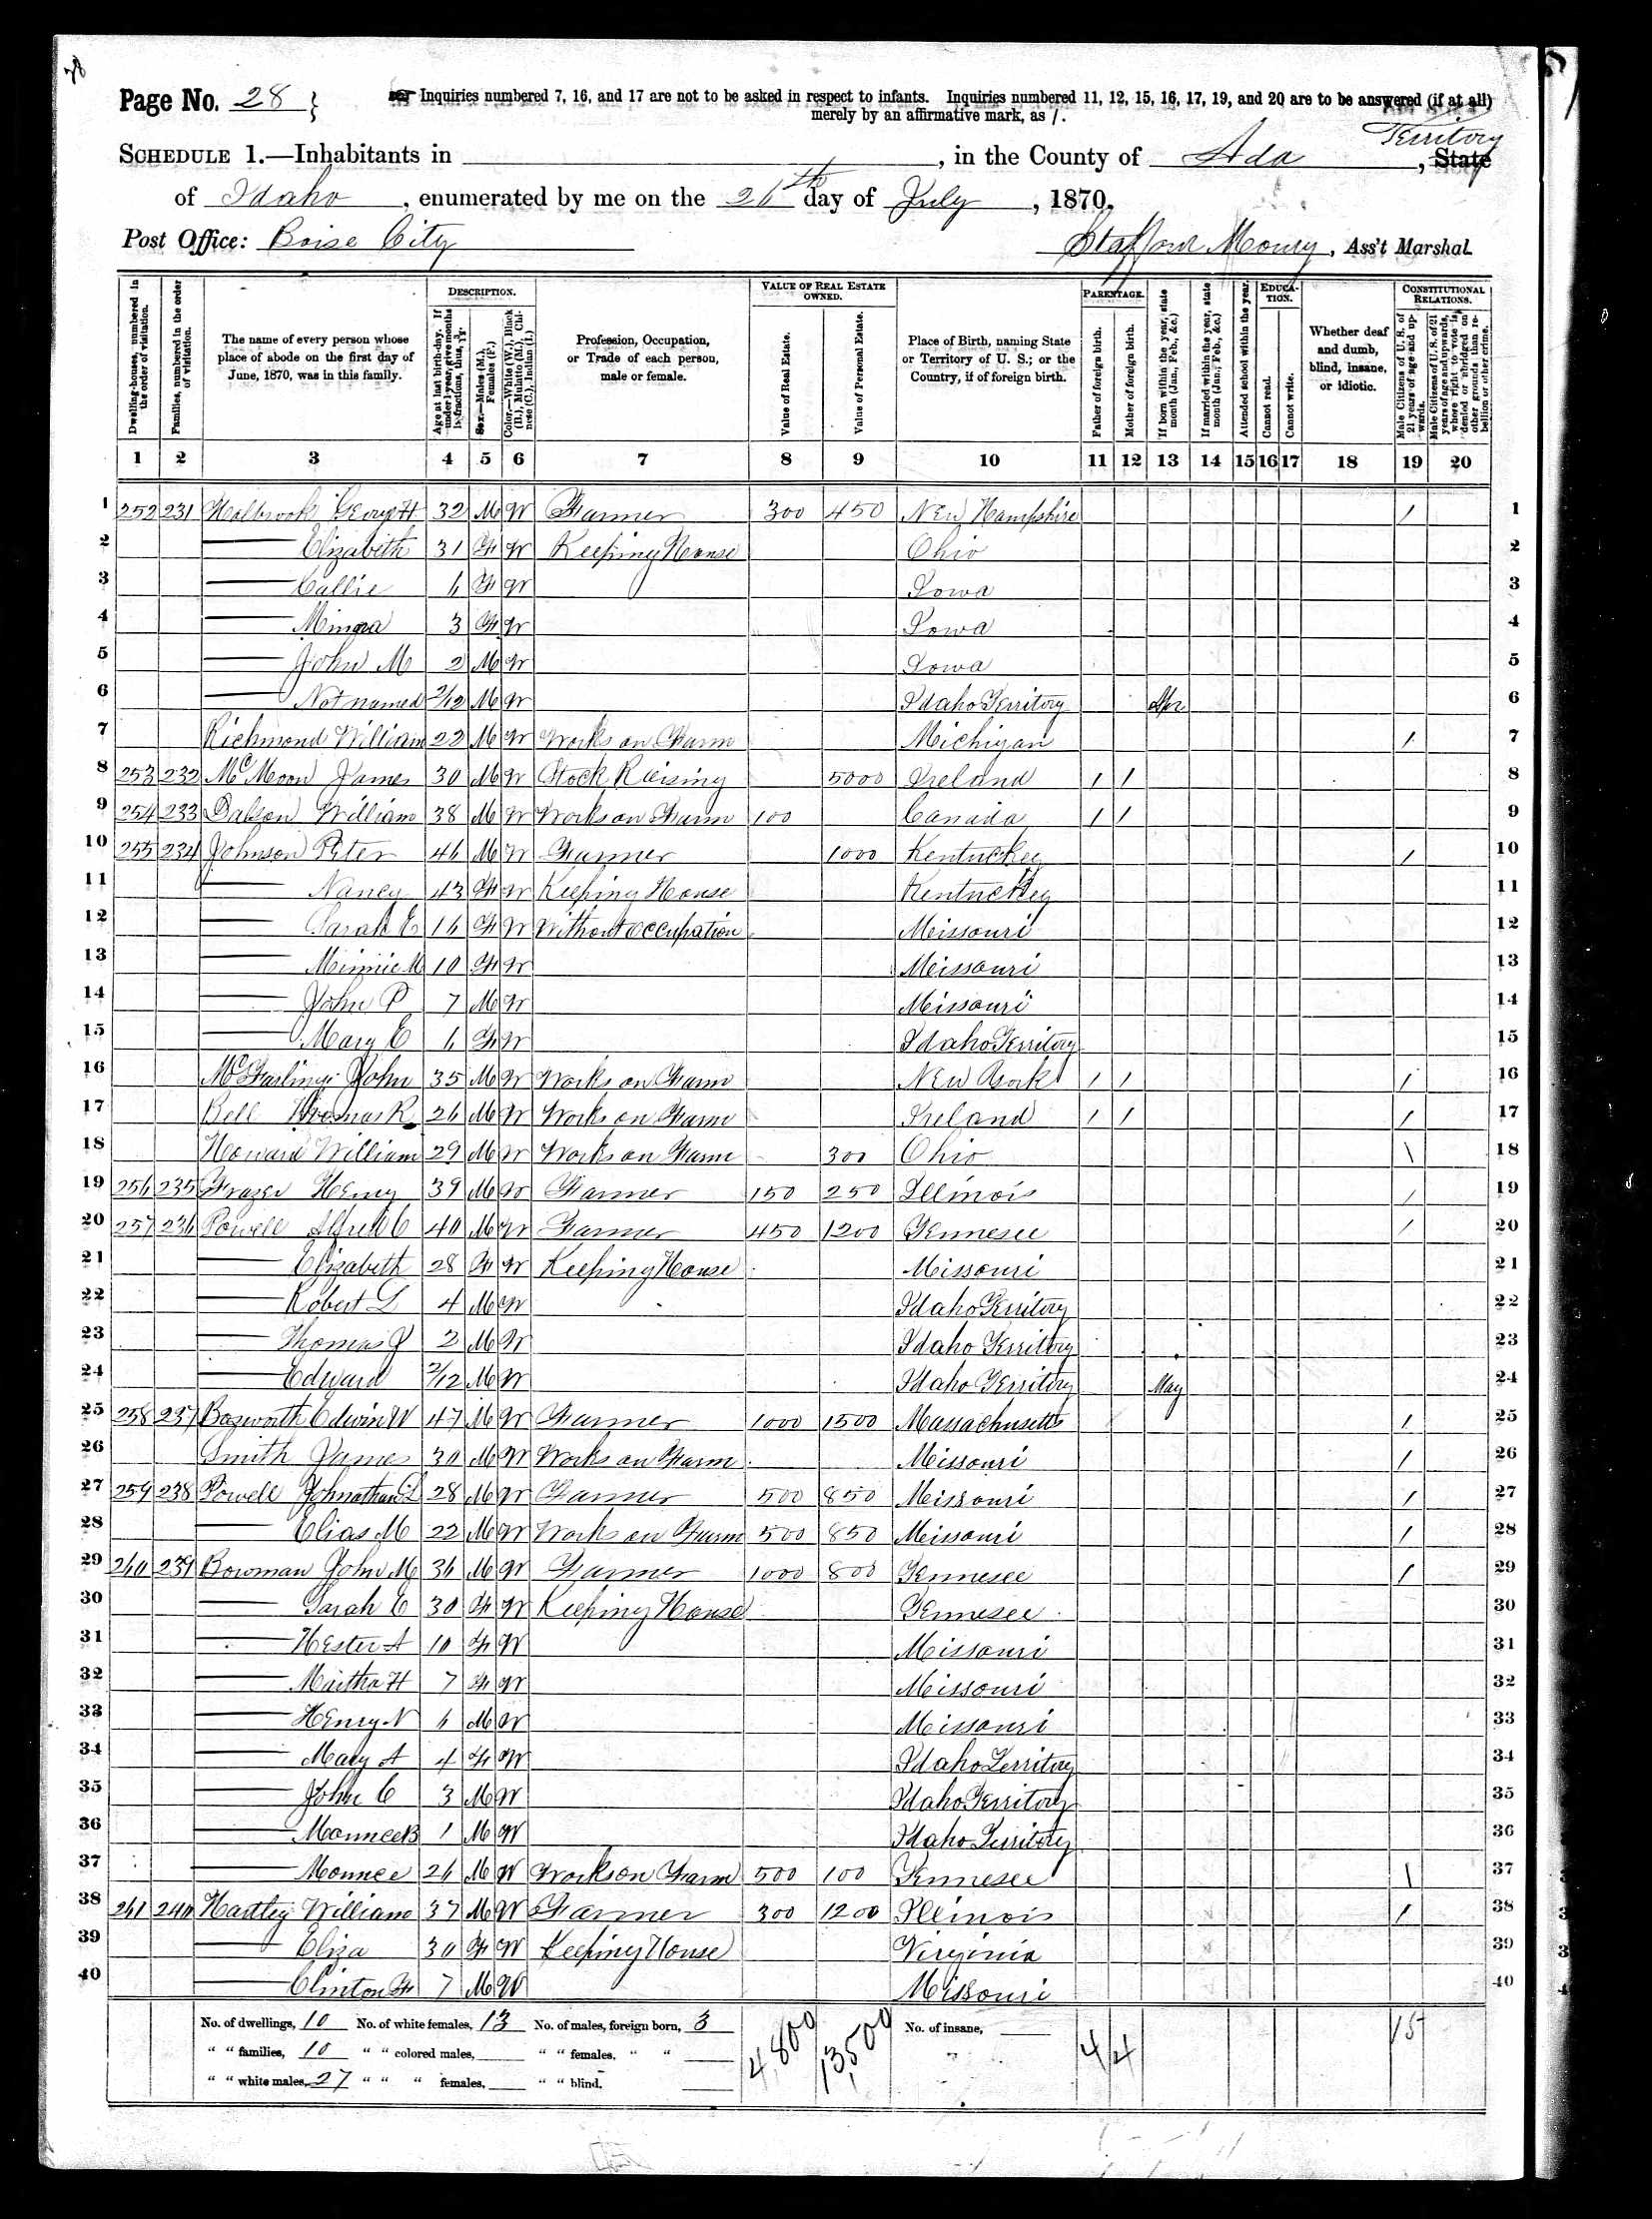 Page No. 28
Inquiries numbered 7, 16, and 17 are not to be asked in respect to infants. Inquiries numbered 11, 12, 15, 16, 17, 19, and 20 are to be answered (if at all)
merely by an affirmative mark, as /.
Territory
SCHEDULE 1.—Inhabitants in , in the County of Ada , State
of Idaho , enumerated by me on the 26th day of July , 1870.
Post Office: Boise City Mowry , Ass't Marshal.
Dwelling-houses, numbered in the order of visitation.
Families, numbered in the order of visitation.
The name of every person whose place of abode on the first day of June, 1870, was in this family.
DESCRIPTION.
Age at last birth-day. If under 1 year, give months in fractions, thus, 3/12.
Sex.—Males (M.), Females (F.)
Color.—White (W.), Black (B.), Mulatto (M.), Chinese (C.), Indian (I.)
Profession, Occupation, or Trade of each person, male or female.
VALUE OF REAL ESTATE OWNED.
Value of Real Estate.
Value of Personal Estate.
Place of Birth, naming State or Territory of U. S.; or the Country, if of foreign birth.
PARENTAGE.
Father of foreign birth.
Mother of foreign birth.
If born within the year, state month (Jan., Feb., &c.)
If married within the year, state month (Jan., Feb., &c.)
Attended school within the year.
EDUCATION.
Cannot read.
Cannot write.
Whether deaf and dumb, blind, insane, or idiotic.
CONSTITUTIONAL RELATIONS.
Male Citizens of U. S. of 21 years of age and upwards.
Male Citizens of U. S. of 21 years of age and upwards, whose right to vote is denied or abridged on other grounds than rebellion or other crime.
1 2 3 4 5 6 7 8 9 10 11 12 13 14 15 16 17 18 19 20
1 252 231 Holbrook George H 32 M W Farmer 300 450 New Hampshire / 1
2 —— Elizabeth 31 F W Keeping House Ohio 2
3 —— Callie 6 F W Iowa 3
4 —— 3 F W Iowa 4
5 —— John M 2 M W Iowa 5
6 —— Not named 2/12 M W Idaho Territory Apr 6
7 Richmond William 22 M W Works on Farm Michigan / 7
8 253 232 McMoon James 30 M W Stock Raising 5000 Ireland / / 8
9 254 233 Dalson William 38 M W Works on Farm 100 Canada / / 9
10 255 234 Johnson Peter 46 M W Farmer 1000 Kentuckey / 10
11 —— Nancy 43 F W Keeping House Kentuckey 11
12 —— Sarah E 16 F W Without occupation Missouri 12
13 —— Minnie M 10 F W Missouri 13
14 —— John P 7 M W Missouri 14
15 —— Mary E 6 F W Idaho Territory 15
16 John 35 M W Works on Farm New York / / / 16
17 Bell Thomas R 26 M W Works on Farm Ireland / / / 17
18 Howard William 29 M W Works on Farm 300 Ohio \ 18
19 256 235 Frazer Henry 39 M W Farmer 150 250 Illinois / 19
20 257 236 Powell Alfred C 40 M W Farmer 450 1200 Tennesee / 20
21 —— Elizabeth 28 F W Keeping House Missouri 21
22 —— Robert L 4 M W Idaho Territory 22
23 —— Thomas J 2 M W Idaho Territory 23
24 —— Edward 2/12 M W Idaho Territory May 24
25 258 237 Bosworth Edwin W 47 M W Farmer 1000 1500 Massachusetts / 25
26 Smith James 30 M W Works on Farm Missouri / 26
27 259 238 Powell Johnathan L 28 M W Farmer 500 850 Missouri / 27
28 —— Elias M 22 M W Works on Farm 500 850 Missouri / 28
29 260 239 Bowman John M 36 M W Farmer 1000 800 Tennesee / 29
30 —— Sarah E 30 F W Keeping House Tennesee 30
31 —— Hester A 10 F W Missouri 31
32 —— Martha H 7 F W Missouri 32
33 —— Henry N 6 M W Missouri 33
34 —— Mary A 4 F W Idaho Territory 34
35 —— John C 3 M W Idaho Territory 35
36 —— Mounce B 1 M W Idaho Territory 36
37 —— Mounce 26 M W Works on Farm 500 100 Tennesee \ 37
38 261 240 Hartley William 37 M W Farmer 300 1200 Illinois / 38
39 —— Eliza 30 F W Keeping House Virginia 39
40 —— Clinton F 7 M W Missouri 40
No. of dwellings, 10 No. of white females, 13 No. of males, foreign born, 3 4,800 13,500 No. of insane, 4 4 15
" " families, 10 " " colored males, " " females, " "
" " white males, 27 " " " females, " " blind,